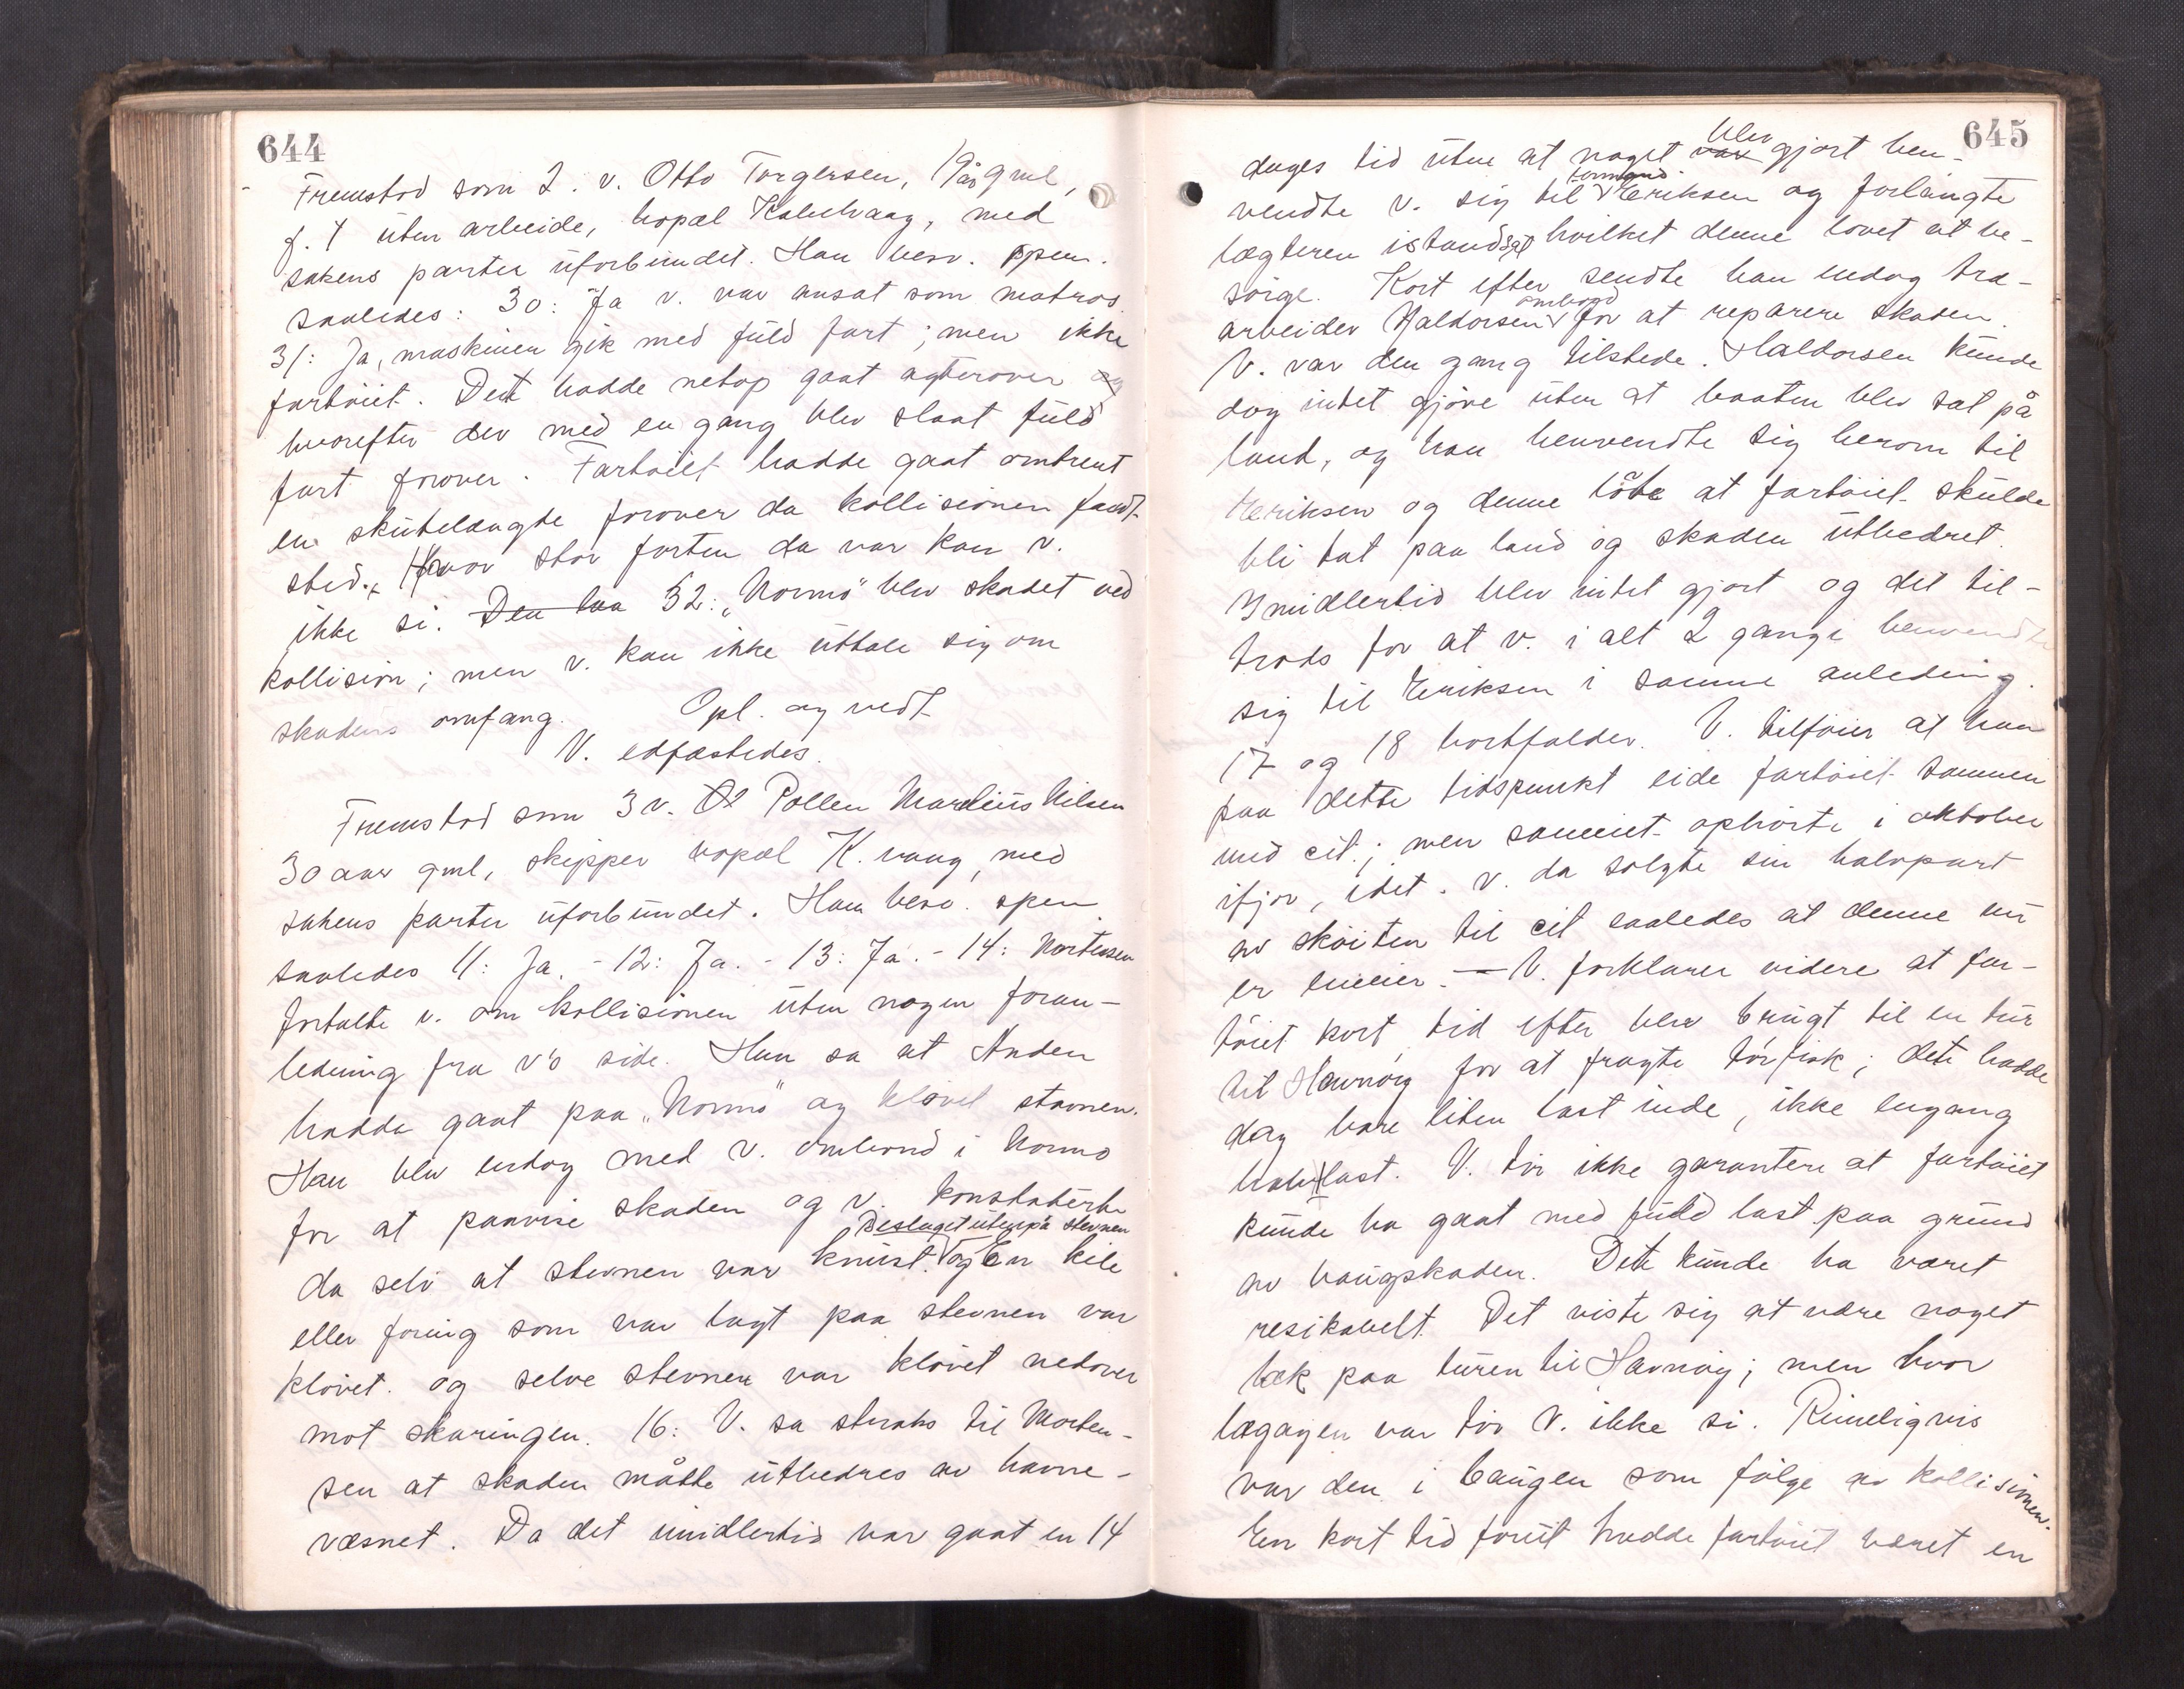 644
Fremstod som 2. v. Otto Torgersen, 19 år gml,
f. t uten arbeide, bopæl Kabelvaag, med
sakens parter uforbundet. Han besv. spm.
saaledes: 30: Ja v. var ansat som matros.
31: Ja, maskinen gik med fuld fart; men ikke
fartöiet. Det hadde netop gaat agterover og
hvorefter der med en gang blev slaat fuld
fart forover. Fartöiet hadde gaat omtrent
en skutelængde forover da kollisionen fandt
sted. Hvor stor farten da var kan v.
ikke si. Den laa 32: „Normo" blev skadet ved
kollision; men v. kan ikke uttale sig om
skadens omfang. Opl. og vedt.
V. edfæstedes.
Fremstod som 3 v. Pollen Marelius Nilsen
30 aar gml, skipper bopæl K. vaag, med
sakens parter uforbundet. Han besv. spm
saaledes 11: Ja. - 12: Ja. - 13: Ja. - 14: Mortensen
fortalte v. om kollisionen uten nogen foran-
ledning fra v's side. Han sa at Anden
hadde gaat paa „Normo" og klövet stevnen.
Han blev endog med v. ombord i Normo
for at paavise skaden og v. konstaterte
Beslaget utenpå stevnen
da selv at stevnen var knust. og En kile
eller foring som var lagt paa stevnen var
klövet. og selve stevnen var klövet nedover
mot skaringen. 16: V. sa straks til Morten-
sen at skaden måtte utbedres av havne-
væsnet. Da det imidlertid var gaat en 14
645
blev
dages tid uten at noget var gjort hen-
formand
vendte v. sig til Eriksen og forlangte
lægteren istandsat hvilket denne lovet at be-
sörge. Kort efter sendte han endog træ-
ombord
arbeider Haldorsen for at reparere skaden.
V. var den gang tilstede. Haldorsen kunde
dog intet gjöre uten at baaten blev sat på
land, og han henvendte sig herom til
Eriksen og denne lovte at fartöiet skulde
bli tat paa land og skaden utbedret.
Imidlertid blev intet gjort og det til-
trods for at v. i alt 2 gange henvendte
sig til Eriksen i samme anledning.
17 og 18 bortfalder. V. tilföier at han
paa dette tidspunkt eide fartöiet sammen
med cit.; men sameiet ophörte i oktober
ifjor, idet v. da solgte sin halvpart
av sköiten til cit saaledes at denne nu
er eneeier. — V. forklarer videre at far-
töiet kort tid efter blev brugt til en tur
til Havnöy for at fragte törfisk; det hadde
dog bare liten last inde, ikke engang
halv last. V. tör ikke garantere at fartöiet
kunde ha gaat med fuld last paa grund
av baugskaden. Det kunde ha været
resikabelt. Det viste sig at være noget
læk paa turen til Havnöy; men hvor
lægagen var tör V. ikke si. Rimeligvis
var den i baugen som fölge av kollisionen.
En kort tid forut hadde fartöiet været en